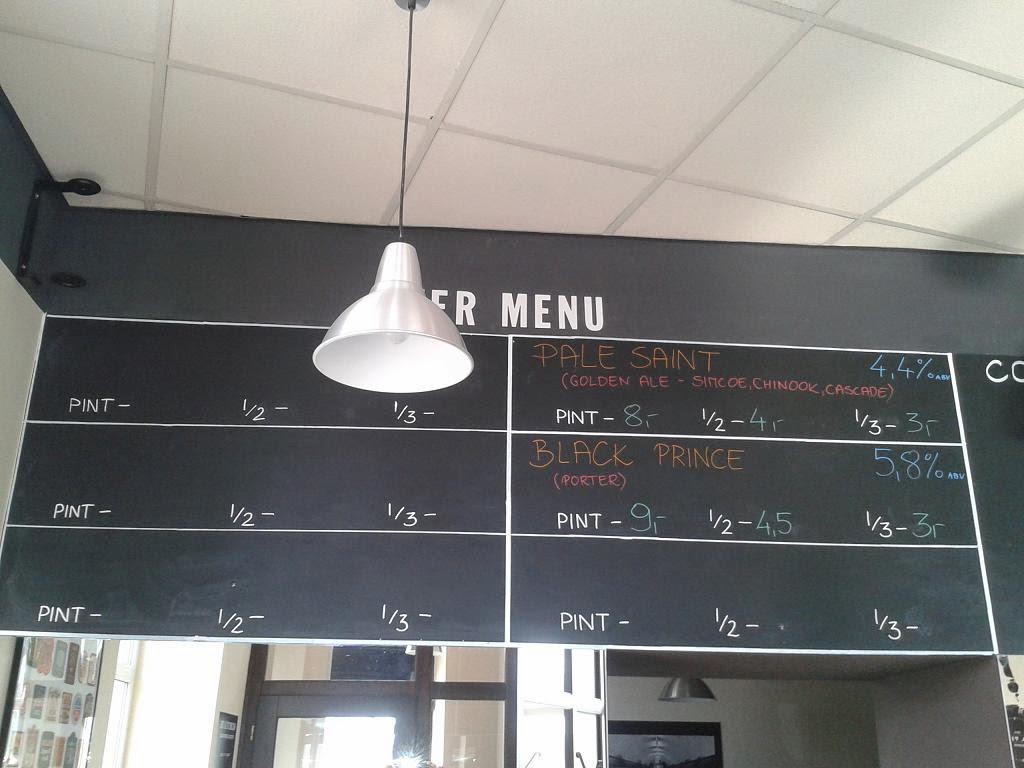 ER MENU
PINT - 1/2 - 1/3 -
PINT - 1/2 - 1/3 -
PINT - 1/2 - 1/3 -
PALE SAINT 4,4% ABV
(GOLDEN ALE - SIMCOE, CHINOOK, CASCADE)
PINT - 8,- 1/2 - 4,- 1/3 - 3,-
BLACK PRINCE 5,8% ABV
(PORTER)
PINT - 9,- 1/2 - 4,5 1/3 - 3,-
PINT - 1/2 - 1/3 -
CO